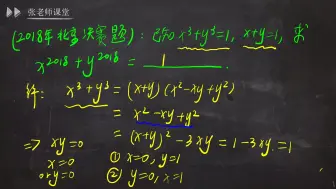 张老师课堂
(2018年北京决赛题):已知x³+y³=1, x+y=1, 求
x²⁰¹⁸+y²⁰¹⁸= 1 .
解: x³+y³=(x+y)(x²-xy+y²)
= x²-xy+y²
=(x+y)²-3xy=1-3xy=1
=> xy=0
x=0 ① x=0, y=1
or y=0 ② y=0, x=1